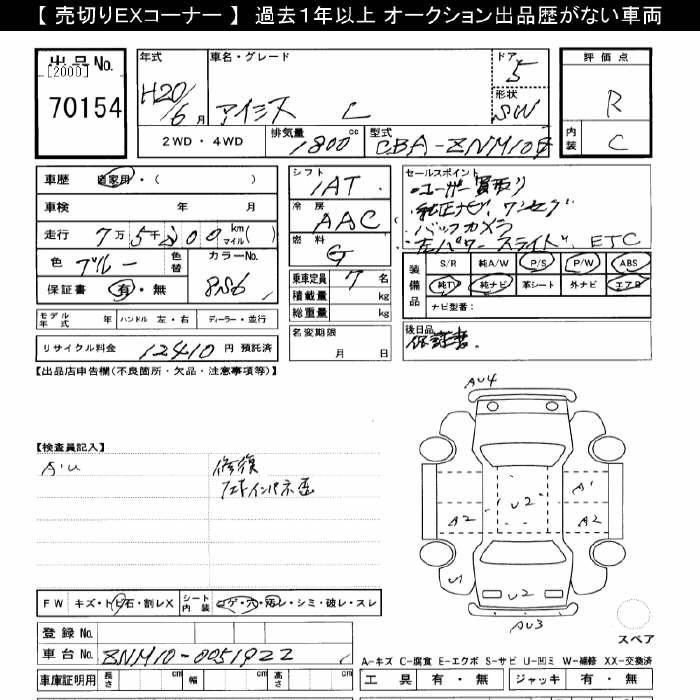 【 売切りEXコーナー 】 過去1年以上 オークション出品歴がない車両
出品No.
[2000]
70154
年式
H20/6月
車名・グレード
アイシス L
ドア
5
形状
SW
2WD・4WD
排気量
1800cc
型式
CBA-ZNM10
評価点
R
内装
C
車歴 自家用・( )
車検 年 月
走行 7万5千200km マイル( )
色 ブルー 色替
カラーNo.
8S6
保証書 有・無
シフト
IAT
冷房
AAC
燃料
G
乗車定員 7名
積載量 kg
総重量 kg
名変期限
月 日
セールスポイント
・ユーザー買取り
・純正ナビ、ワンセグ
・バックカメラ
・左パワースライド、ETC
装備品
S/R 純A/W P/S P/W ABS
純TV 純ナビ 革シート 外ナビ エアB
ナビ型番:
モデル年式 年 ハンドル 左・右 ディーラー・並行
リサイクル料金 12410円 預託済
後日品
保証書.
【出品店申告欄(不良箇所・欠品・注意事項等)】
【検査員記入】
A・U
修復
フェドインパネ歪
AU4
U2
A1
A2
A2
U2
AU3
スペア
FW キズ・トビ石・割レX
シート内装 コゲ・穴・汚レ・シミ・破レ・スレ
登録No.
車台No. ZNM10-0051922
車庫証明用 長さ cm 幅 cm 高さ cm
A-キズ C-腐食 E-エクボ S-サビ U-凹ミ W-補修 XX-交換済
工具 有・無 ジャッキ 有・無